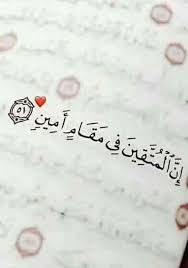 إِنَّ ٱلْمُتَّقِينَ فِى مَقَامٍ أَمِينٍ ٥١